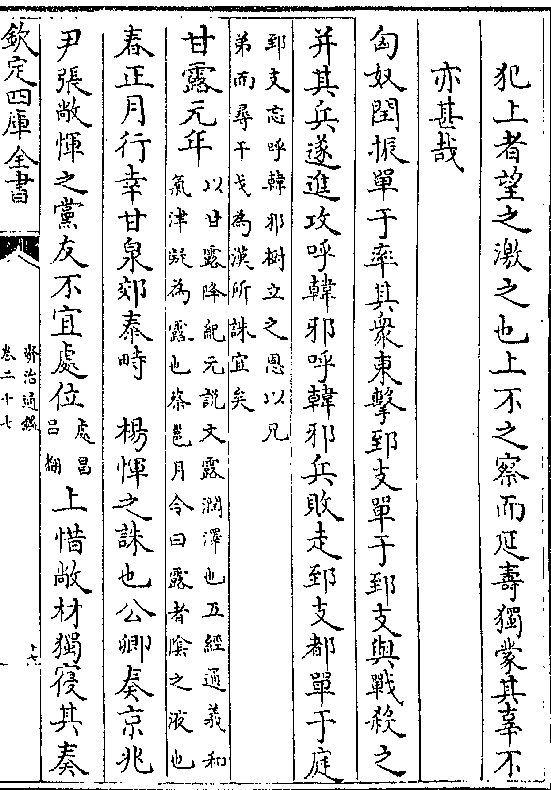 犯上者望之激之也上不之察而延壽獨蒙其辜不
亦甚哉
匈奴閏振單于率其衆東擊郅支單于郅支與戰殺之
并其兵遂進攻呼韓邪呼韓邪兵敗走郅支都單于庭
郅支忘呼韓邪樹立之恩以兄
弟而尋干戈為漢所誅宜矣
甘露元年
以甘露降紀元説文露潤澤也五經通義和
氣津凝為露也蔡邕月令曰露者隂之液也
春正月行幸甘泉郊泰畤 楊惲之誅也公卿奏京兆
尹張敞惲之黨友不宜處位
處昌
吕翻
上惜敞材獨寝其奏
欽定四庫全書
資治通鑑
卷二十七
十七